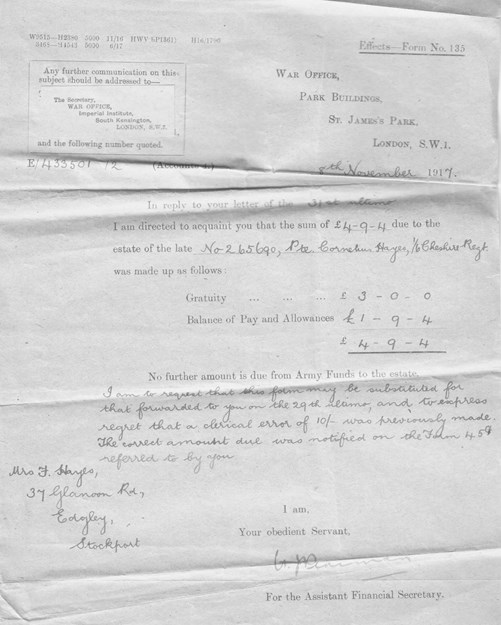 Effects—Form No. 135
Any further communication on this
subject should be addressed to—
The Secretary,
WAR OFFICE,
Imperial Institute,
South Kensington,
LONDON, S.W.1
and the following number quoted.
WAR OFFICE,
PARK BUILDINGS,
ST. JAMES'S PARK,
LONDON, S.W.1.
E/433501/2 (Accounts
8th November 1917.
In reply to your letter of the 31st ultimo
I am directed to acquaint you that the sum of £4-9-4 due to the
estate of the late No 265690, Pte Cornelius Hayes, 1/6 Cheshire Regt
was made up as follows:
Gratuity ... ... ... £ 3-0-0
Balance of Pay and Allowances £ 1-9-4
£ 4-9-4
No further amount is due from Army Funds to the estate.
I am to request that this form may be substituted for
that forwarded to you on the 29th ultimo, and to express
regret that a clerical error of 10/- was previously made
The correct amount due was notified on the Form 45
referred to by you
Mrs F. Hayes,
37 Rd,
Edgley,
Stockport
I am,
Your obedient Servant,
For the Assistant Financial Secretary.